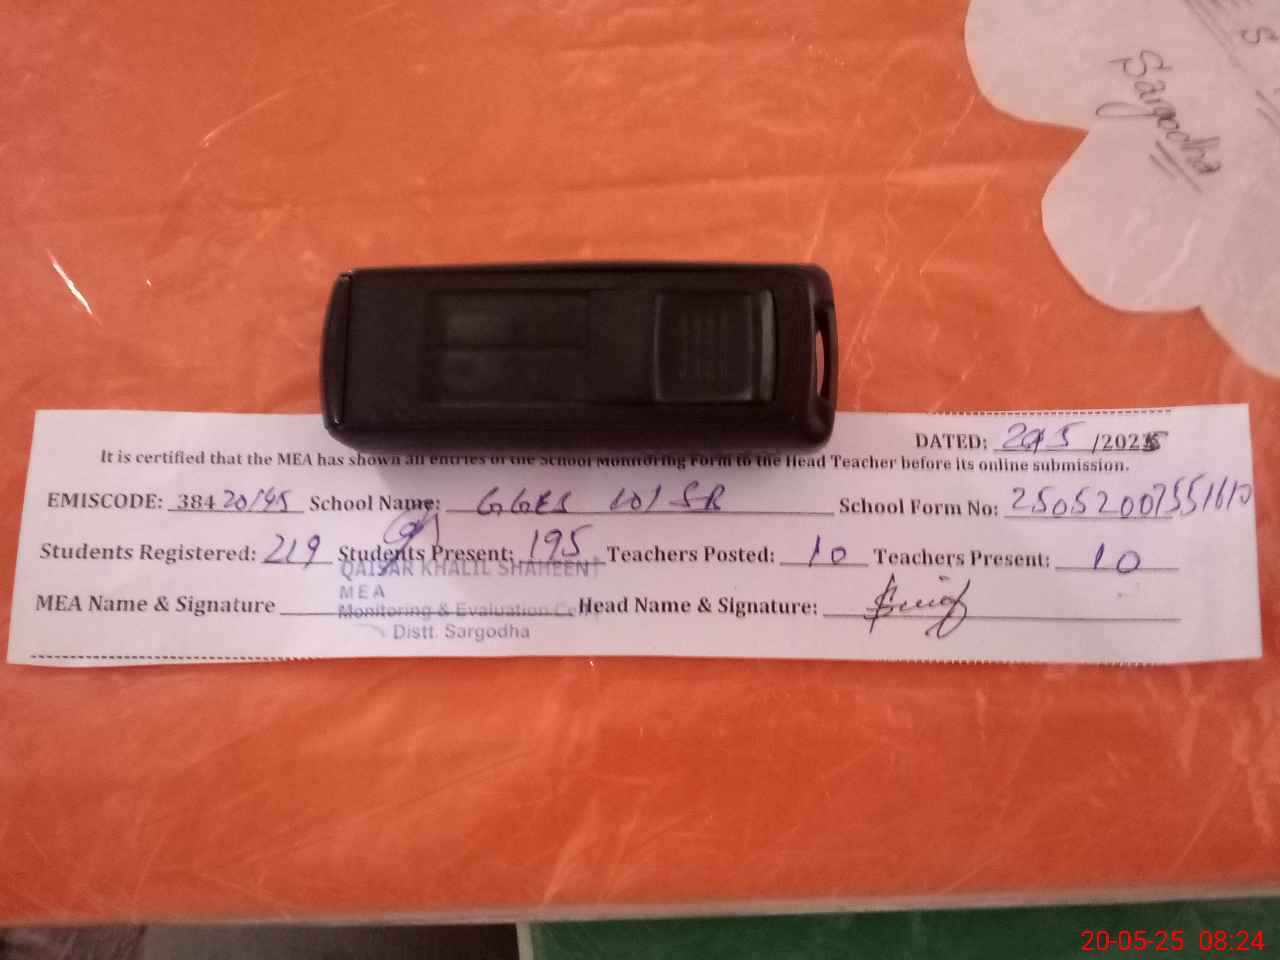 S
Sargodha
DATED: 20/5 /2025
It is certified that the MEA has shown all entries of the School Monitoring Form to the Head Teacher before its online submission.
EMISCODE: 384 20145 School Name: GGES 101 SB School Form No: 25052007551610
Students Registered: 219 Students Present: 195 Teachers Posted: 10 Teachers Present: 10
QAISAR KHALIL SHAHEEN
MEA
MEA Name & Signature Monitoring & Evaluation Head Name & Signature:
Distt. Sargodha
20-05-25 08:24